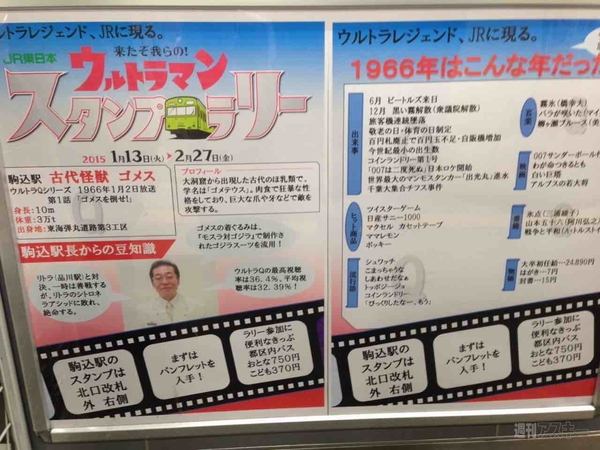 ルトラレジェンド、JRに現る。
来たぞ我らの!
JR東日本
ウルトラマン
スタンプラリー
2015 1月13日(火)▶2月27日(金)
駒込駅 古代怪獣 ゴメス
ウルトラQシリーズ 1966年1月2日放送
第1話 「ゴメスを倒せ!」
身長:10m
体重:3万t
出身地:東海弾丸道路第3工区
プロフィール
大洞窟から出現した古代のほ乳類で、
学名は「ゴメテウス」。肉食で狂暴な性
格をしており、巨大な爪や牙などで敵を
攻撃する。
ゴメスの着ぐるみは、
「モスラ対ゴジラ」で制作さ
れたゴジラスーツを流用!
駒込駅長からの豆知識
リトラ(品川駅)と対
決、一時は善戦する
が、リトラのシトロネ
ラアシッドに敗れ、
絶命する。
ウルトラQの最高視聴
率は36.4%、平均視
聴率は32.39%!
駒込駅の
スタンプは
北口改札
外 右側
まずは
パンフレットを
入手!
ラリー参加に
便利なきっぷ
都区内パス
おとな750円
こども370円
ウルトラレジェンド、JRに現る。
1966年はこんな年だっ
出来事
6月 ビートルズ来日
12月 黒い霧解散(衆議院解散)
旅客機連続墜落
敬老の日・体育の日制定
百円札廃止で百円玉不足・自販機増加
今世紀最小の出生数
コインランドリー第1号
「007は二度死ぬ」日本ロケ開始
世界最大のマンモスタンカー「出光丸」進水
千葉大集合チフス事件
ヒット商品
ツイスターゲーム
日産サニー1000
マクセル カセットテープ
ママレモン
ポッキー
流行語
シュワッチ
こまっちゃうな
しあわせだなぁ
トッポジージョ
コインランドリー
「びっくりしたなー、もう」
音楽
霧氷(橋幸夫)
バラが咲いた(マイ
柳ヶ瀬ブルース(美
映画
007サンダーボール作
わが命つきるとも
白い巨塔
アルプスの若大将
書籍
氷点(三浦綾子)
山本五十六(阿川弘之)
戦争と平和(A・トルストイ
物価
大卒初任給…24,890円
はがき…7円
封書…15円
駒込駅の
スタンプは
北口改札
外 右側
まずは
パンフレットを
入手!
ラリー参加に
便利なきっぷ
都区内パス
おとな750円
こども370円
週刊アスキー